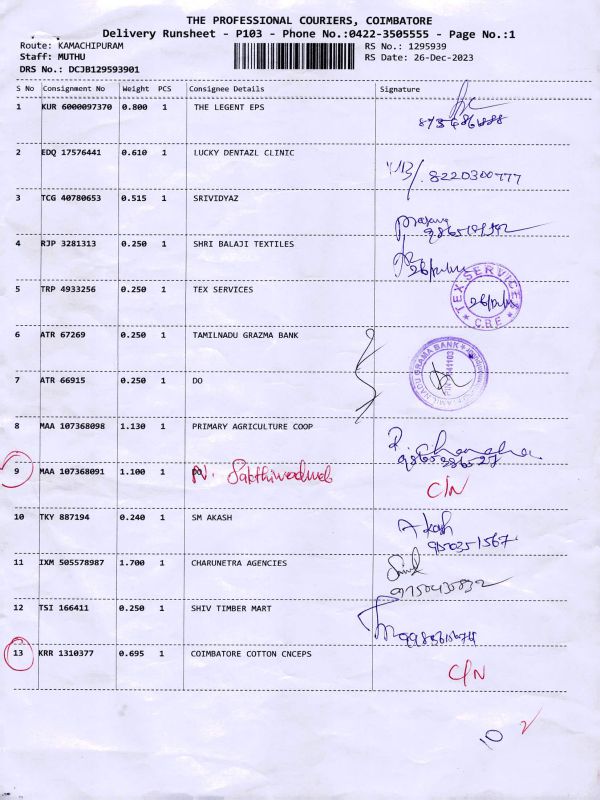 THE PROFESSIONAL COURIERS, COIMBATORE
Delivery Runsheet - P103 - Phone No.:0422-3505555 - Page No.:1
Route: KAMACHIPURAM RS No.: 1295939
Staff: MUTHU RS Date: 26-Dec-2023
DRS No.: DCJB129593901
S No Consignment No Weight PCS Consignee Details Signature
1 KUR 6000097370 0.800 1 THE LEGENT EPS
2 EDQ 17576441 0.610 1 LUCKY DENTAZL CLINIC 8220300777
3 TCG 40780653 0.515 1 SRIVIDYAZ
4 RJP 3281313 0.250 1 SHRI BALAJI TEXTILES
5 TRP 4933256 0.250 1 TEX SERVICES TEX SERVICES C.B.E
6 ATR 67269 0.250 1 TAMILNADU GRAZMA BANK
7 ATR 66915 0.250 1 DO
8 MAA 107368098 1.130 1 PRIMARY AGRICULTURE COOP
9 MAA 107368091 1.100 1 C/N
10 TKY 887194 0.240 1 SM AKASH Akash
9500351567
11 IXM 505578987 1.700 1 CHARUNETRA AGENCIES
12 TSI 166411 0.250 1 SHIV TIMBER MART
13 KRR 1310377 0.695 1 COIMBATORE COTTON CNCEPS C/N
10 2